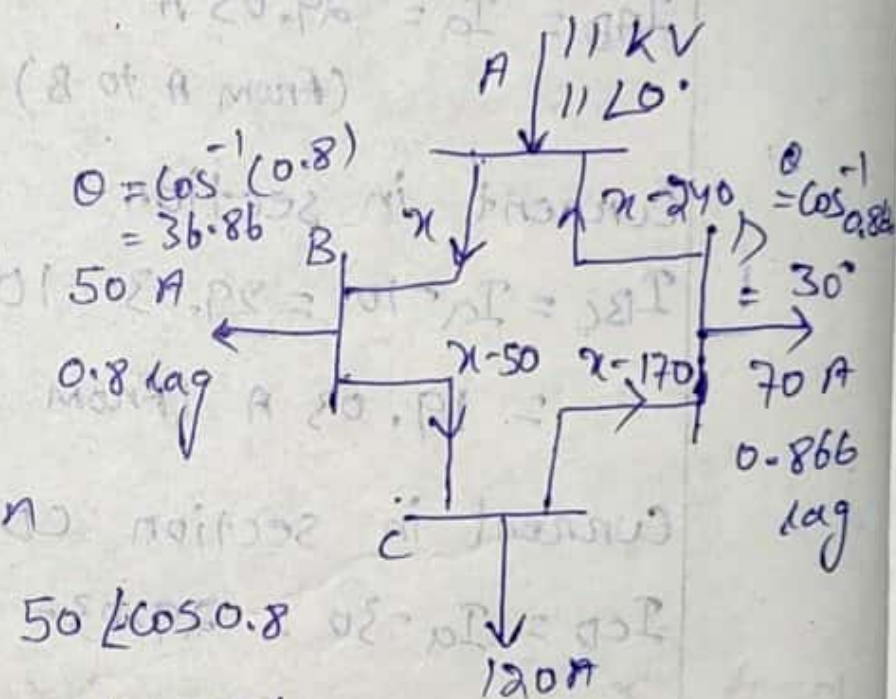 A
11 KV
11∠0°
θ = Cos⁻¹(0.8)
= 36.86
x
x-240
θ
= Cos⁻¹ 0.86
B
D
= 30°
50 A
0.8 lag
x-50
x-170
70 A
0.866
lag
C
50 ∠cos 0.8
120A